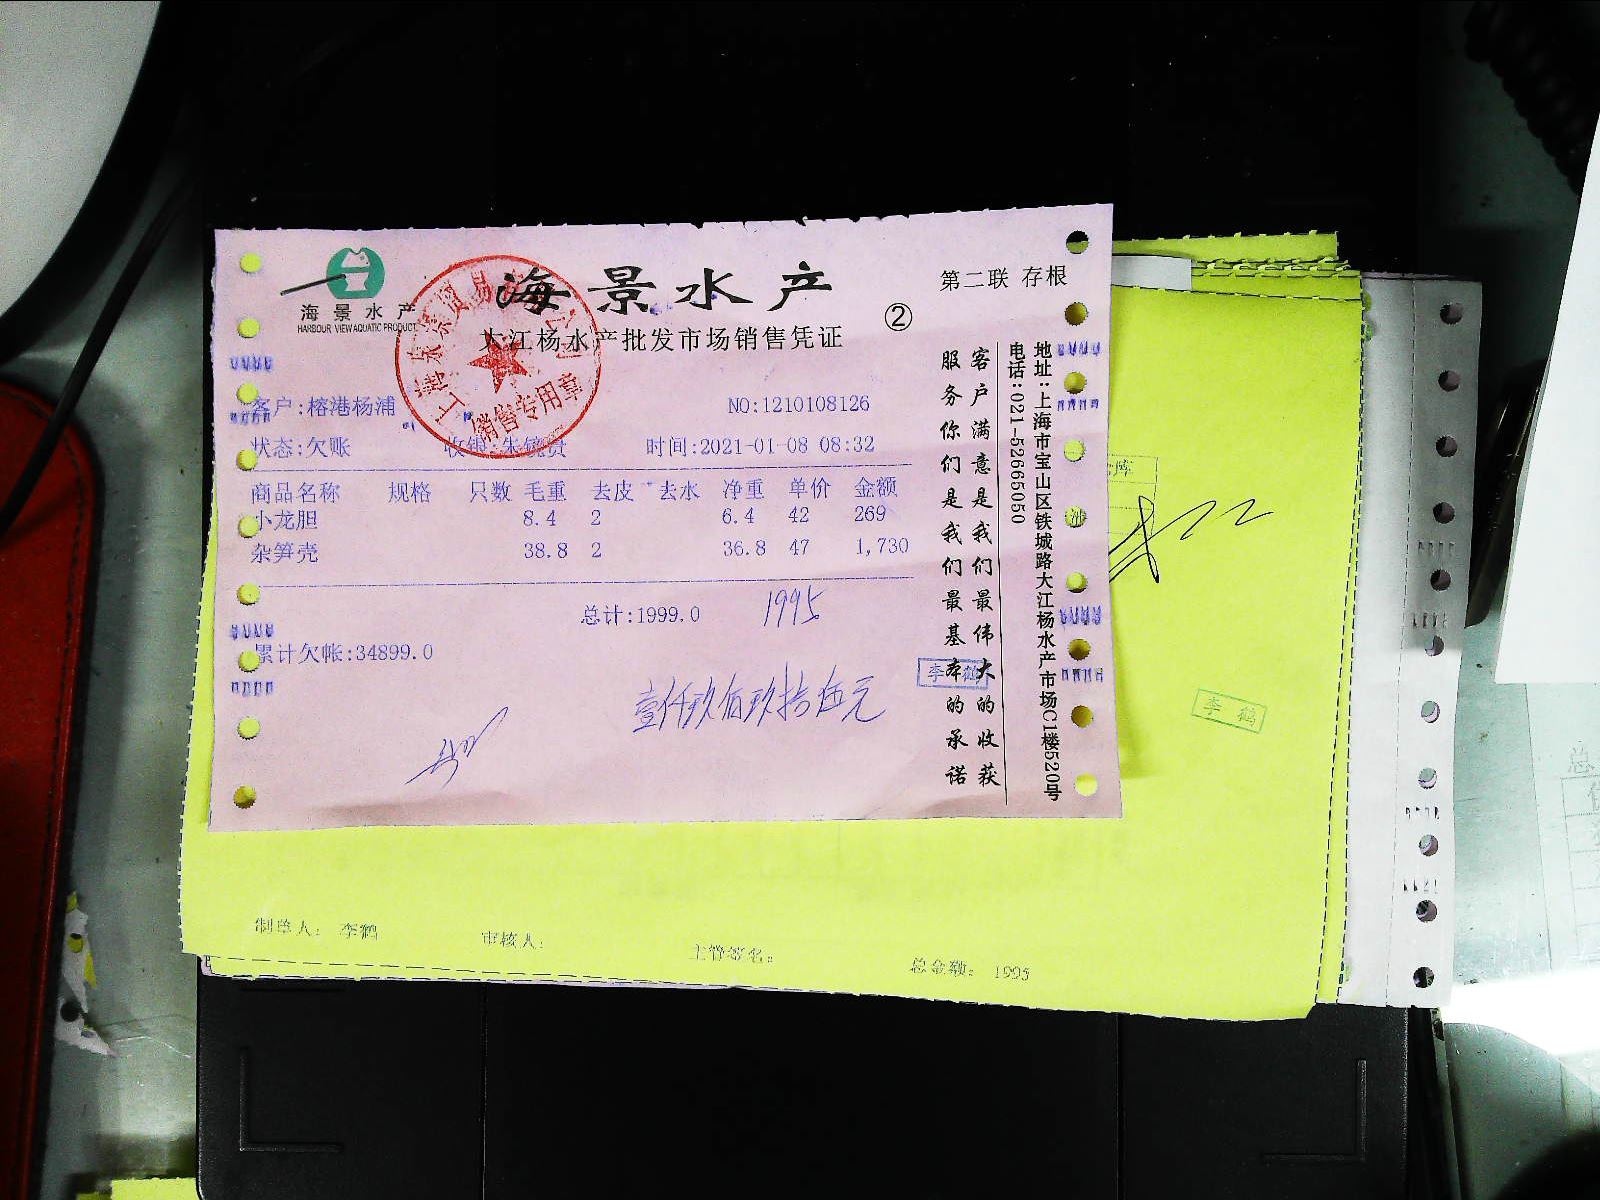 海景水产
HARBOUR VIEW AQUATIC PRODUCT
海景水产
第二联 存根
大江杨水产批发市场销售凭证
②
销售专用章
客户:榕港杨浦
NO:1210108126
状态:欠账
收银:朱镜贵
时间:2021-01-08 08:32
商品名称 规格 只数 毛重 去皮 去水 净重 单价 金额
小龙胆 8.4 2 6.4 42 269
杂笋壳 38.8 2 36.8 47 1,730
总计:1999.0
1995
累计欠帐:34899.0
壹仟玖佰玖拾伍元
客户满意是我们最伟大的收获
服务你们是我们最基本的承诺
地址:上海市宝山区铁城路大江杨水产市场C1楼520号
电话:021-52665050
李鹤
李鹤
制单人: 李鹤
审核人:
主管签名:
总金额: 1995